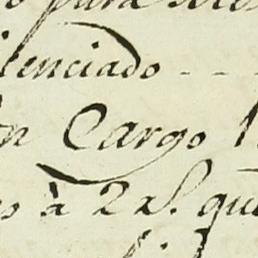 para
lenciado - - -
n Cargo 1
s à 2 rs. que